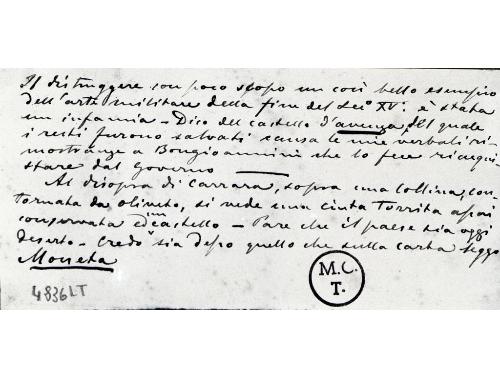 Il distruggere con poco scopo un così bello esempio
dell'arte militare della fine del sec° XV.° è stata
un infamia – Dico del castello d'avenza, del quale
i resti furono salvati causa le mie verbali ri-
mostranze a Bongioannini che lo fece riacqui-
stare dal Governo
Al disopra di Carrara, sopra una collina, con-
tornata da oliveto, si vede una cinta turrita assai
conservata ed un castello – Pare che il paese sia oggi
deserto – Credo sia desso quello che sulla carta leggo
Moneta
4836 LT
M.C.
T.